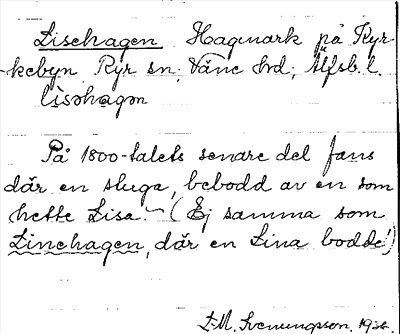 Lisehagen Hagmark på Kyr-
kebyn Ryr sn; Väne hrd; Älfsb. l.
lisəhagən
På 1800-talets senare del fans
där en stuga, bebodd av en som
hette Lisa. (Ej samma som
Linehagen, där en Lina bodde!)
L.M. Svenungsson.